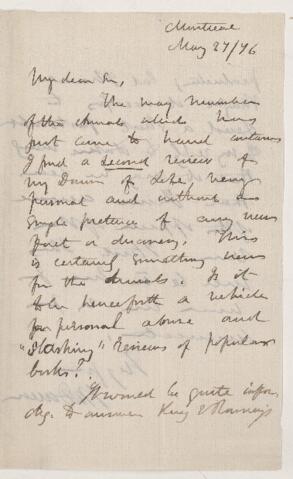 Montreal
May 27/76
My dear Sir,
The May number
of the Annals which has
just come to hand contains
I find a second review of
my Dawn of Life, very
personal and without a
single pretence of any new
fact or discovery. This
is certainly something new
for the Annals. Is it
to be henceforth a vehicle
for personal abuse and
"Slashing" Reviews of popular
books?
It would be quite
to answer King & Rowney's